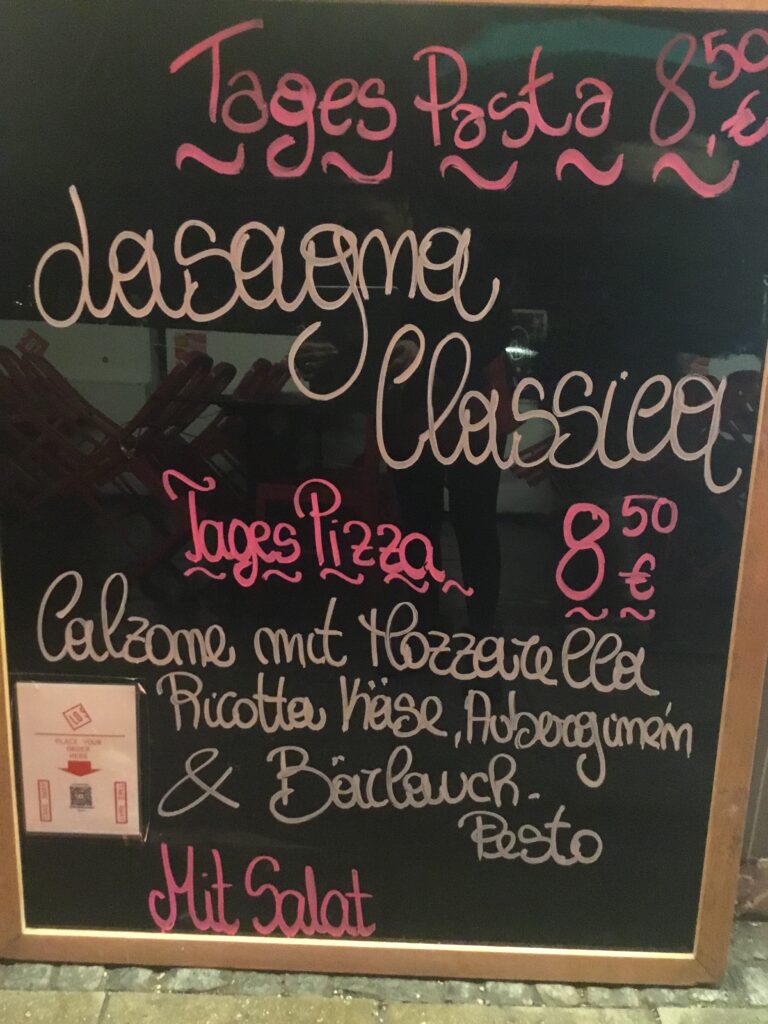 Tages Pasta 8,50 €
Lasagna
Classica
Tages Pizza 8 50 €
Calzone mit Mozzarella
Ricotta Käse, Auberginen
& Bärlauch-
Pesto
PLACE YOUR
ORDER
HERE
Mit Salat